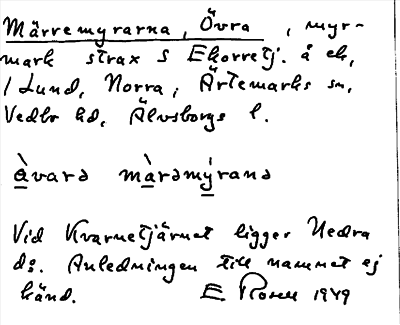 Märremyrarna, Övra, myr-
mark strax S Ekorretj. å ek,
1 Lund, Norra, Ärtemarks sn,
Vedbo hd, Älvsborgs l.
àvarə màrəmýranə
Vid Kvarnetjärnet ligger Nedra
d:o. Anledningen till namnet ej
känd. E Rosell 1949